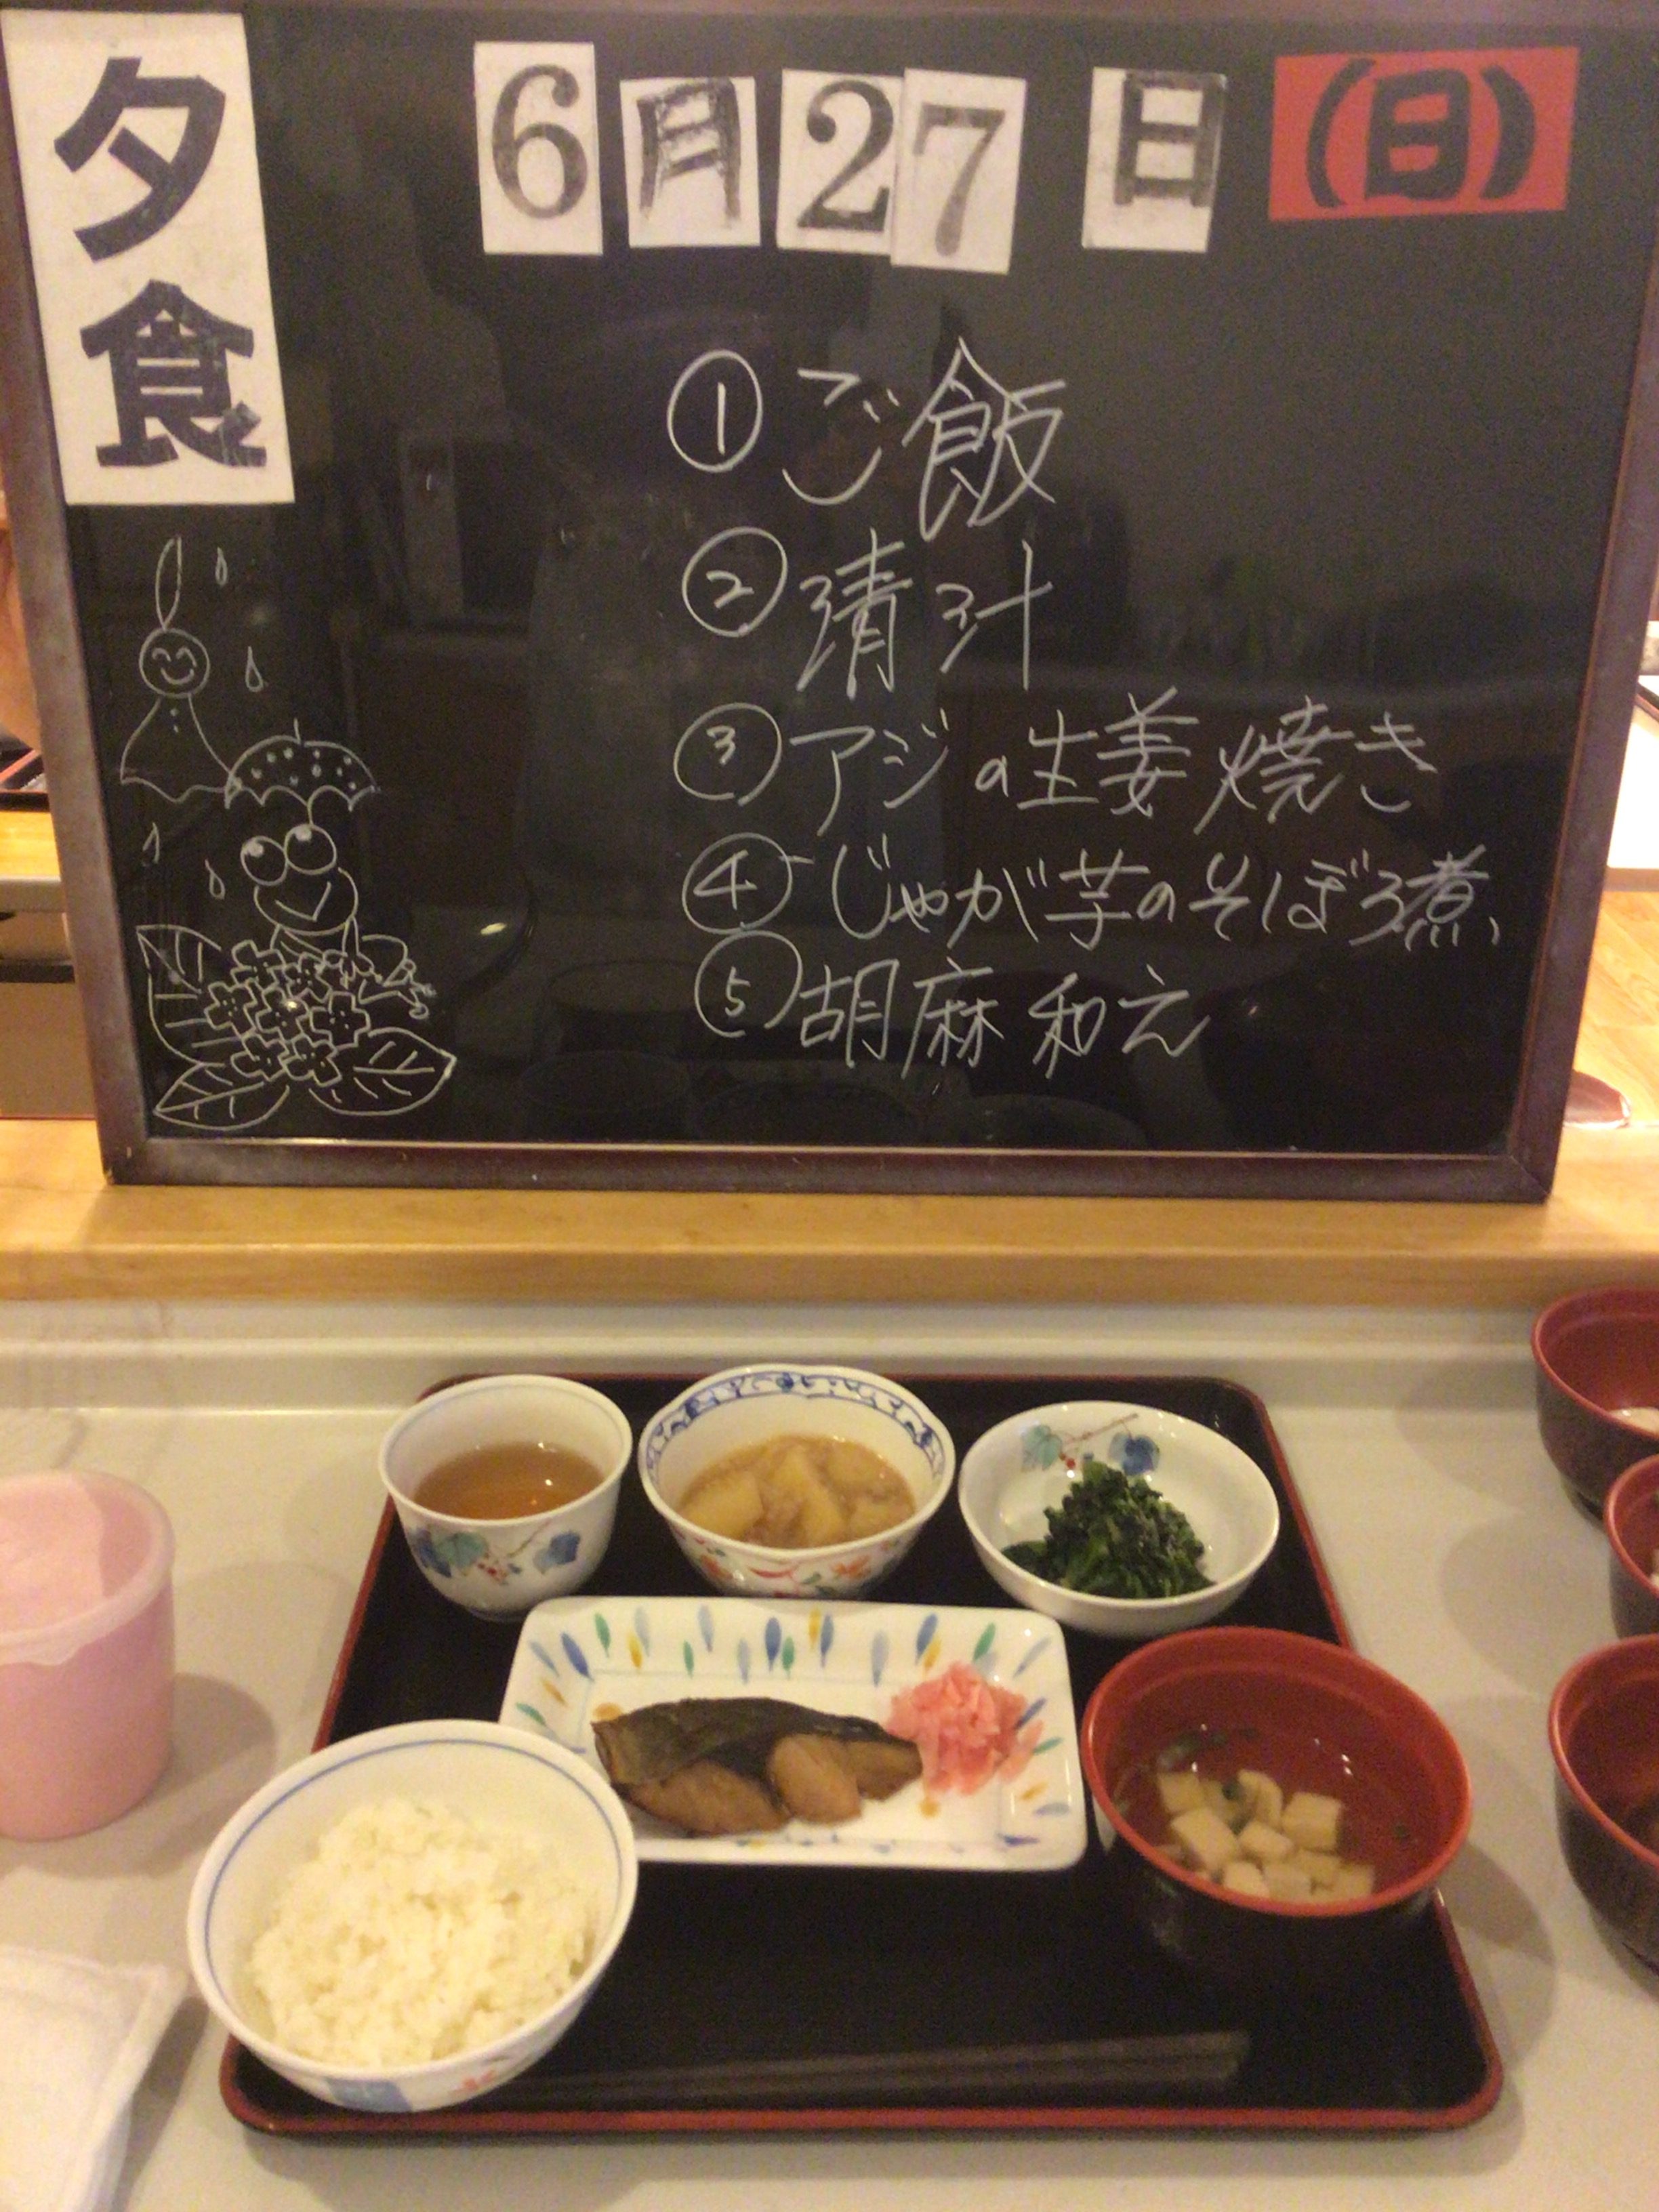 夕食
6月27日(日)
①ご飯
②清汁
③アジの生姜焼き
④じゃが芋のそぼろ煮
⑤胡麻和え